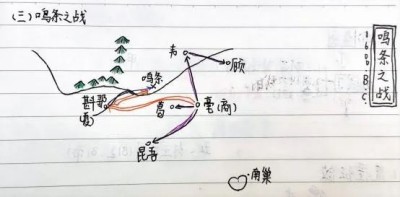 (三)鸣条之战
鸣条之战
1600B.C.
韦
顾
鸣条
斟鄩
(夏)
葛
亳(商)
昆吾
南巢